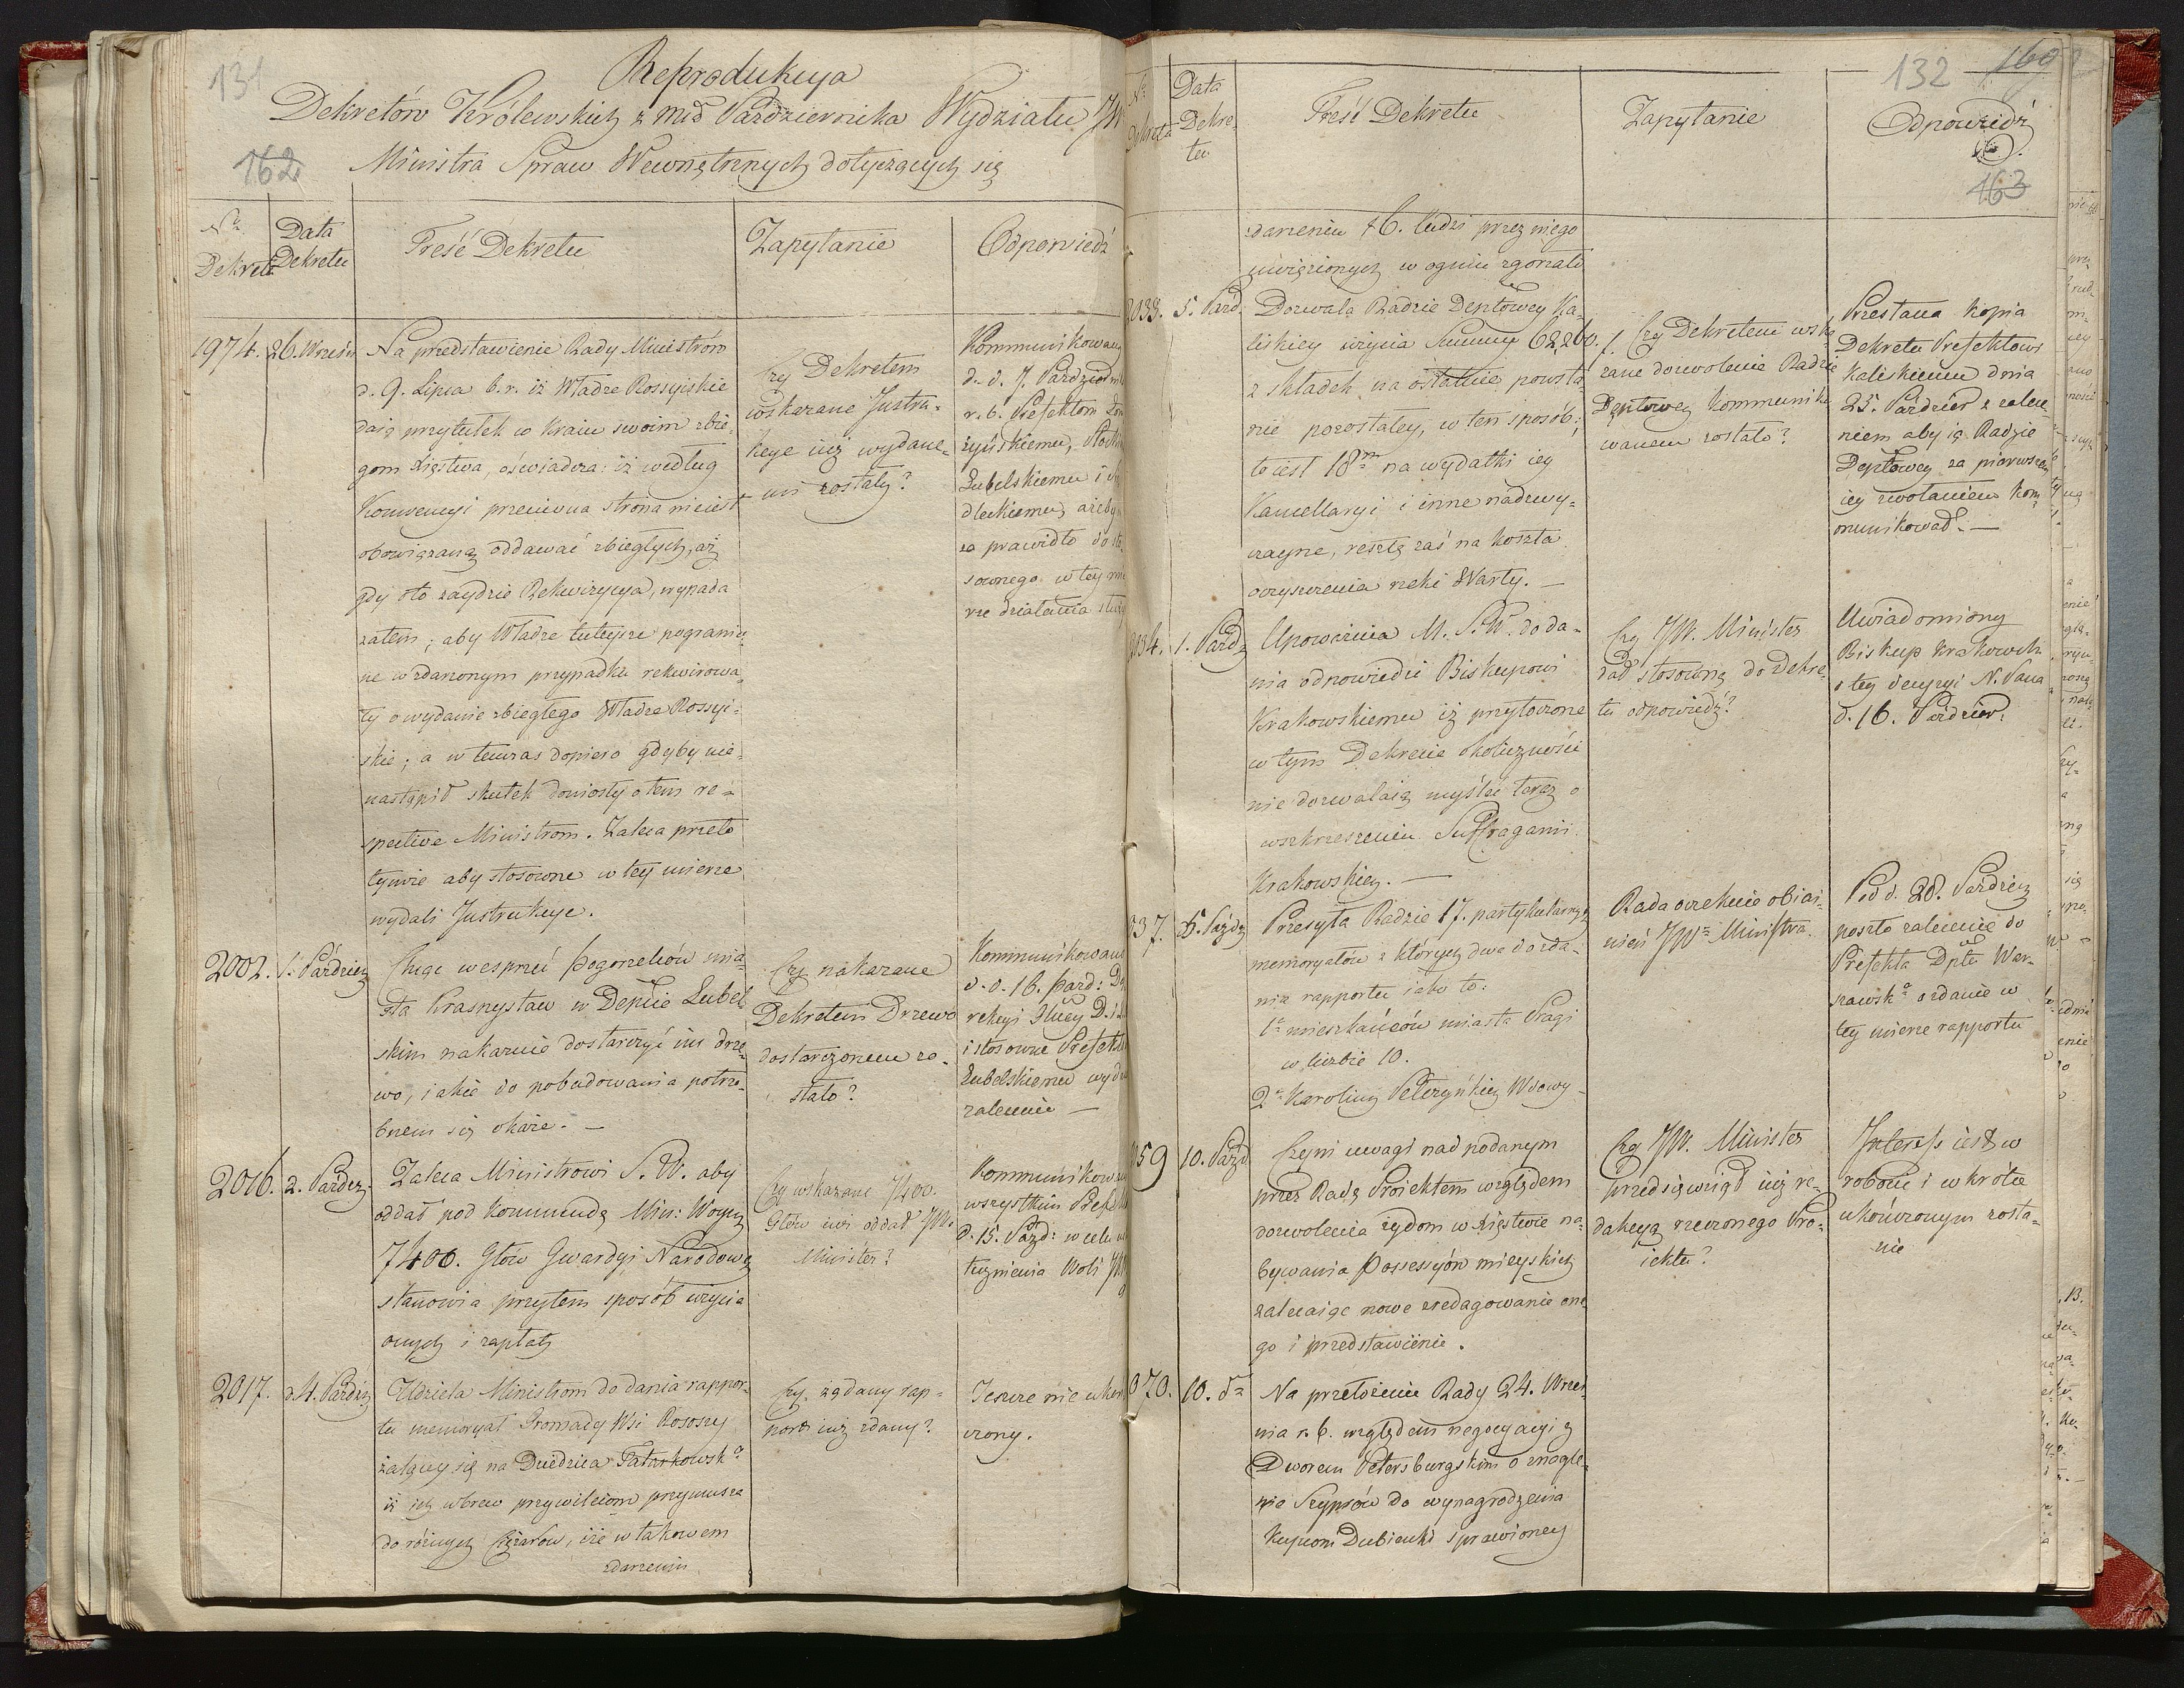 131
Reprodukcya
Dekretów Królewskich z mca Pazdziernika Wydziału JW
162
Ministra Spraw Wewnętrznych dotyczących się
Nr Dekretu
Data Dekretu
Treść Dekretu
Zapytanie
Odpowiedź
1974.
26. Wrześn
Na przedstawienie Rady Ministrów
d. 9. Lipca b. r. iż Władze Rossyiskie
daią przytułek w Kraiu swoim zbie-
gom Xięstwa, oświadcza: iż według
Konwencyi przeciwna strona nie iest
obowiązaną oddawać zbiegłych, aż
gdy oto zaydzie Rekwizycya, wypada
zatem; aby Władze tuteysze pogranicz-
ne w zdarzonym przypadku rekwirowa-
ły o wydanie zbiegłego Władze Rossyi-
skie; a w tenczas dopiero gdyby nie-
nastąpił skutek doniosły o tem re-
spective Ministrom. Zaleca przeto
tymże aby stosowne w tey mierze
wydali Instrukcye.
Czy Dekretem
wskazane Instru-
kcye iuż wydane-
mi zostały?
Kommunikowany
d. d. 7. Pazdziernik
r. b. Prefektom Łom
żyńskiemu, Płock
Lubelskiemu i
dleckiemu, ażeby
za prawidło do sto
sownego w tey mie
rze działania służy
2002.
1. Pazdzier
Chcąc wesprzeć pogorzelców mia-
sta Krasnystaw w Depcie Lubel
skim nakazuie dostarczyć im drze-
wo, iakie do pobudowania potrze-
bnem się okaże. —
Czy nakazane
Dekretem Drzewo
dostarczonem zo-
stało?
Kommunikowane
d. d. 16. pazd: Dy
rekcyi Głney D. i L
i stosowne Prefekt
Lubelskiemu wyda
zalecenie —
2016.
2. Pazdz.
Zaleca Ministrowi S. W. aby
oddał pod Kommendę Min: Woyny
7400. Głów Gwardyi Narodowey
stanowia przytem sposób użycia
onych i zapłaty
Czy wskazane 7400.
Głów iuż oddał JW.
Minister?
Kommunikowane
wszystkim Prefek
d. 15. Pazd: w celu u
tecznienia Woli
2017.
d. 4. Pazdz
Udziela Ministrom do dania rappor-
tu memoryał Gromady Wsi Rososzy
żalącey się na Dziedzica Tatarkowsko
iż ich wbrew przywileiom przymusza
do różnych Ciężarów, i że w takowem
zdarzeniu
Czy żądany rap-
port iuż zdany?
Jeszcze nie ukoń
czony.
132
169
Nr Dekretu
Data Dekre-
tu
Treść Dekretu
Zapytanie
Odpowiedź
163
zdarzeniu 16. ludzi przez niego
uwięzionych w ogniu zgorzało
2033.
5. Pazd.
Dozwala Radzie Deptowey Ka-
liskiey użycia Summy 62,260.
z składek na ostatnie powsta
nie pozostałey, w ten sposób;
to iest 18m na wydatki iey
Kancellaryi i inne nadzwy-
czayne, resztę zaś na koszta
oczyszczenia rzeki Warty. —
1. Czy Dekretem wska
zane dozwolenie Radzie
Deptowey kommuniko
wanem zostało?
Przesłana Kopia
Dekretu Prefektowi
Kaliskiemu dnia
25. Pazdzier z zalece-
niem aby ią Radzie
Deptowey za pierwszem
iey zwołaniem kom-
munikował. —
2034.
1. Pazdz
Upoważnia M. S. W. do da-
nia odpowiedzi Biskupowi
Krakowskiemu iż przytoczone
w tym Dekrecie okoliczności
nie dozwalaią myśleć teraz o
wskrzeszeniu Suffraganii
Krakowskiey. —
Czy JW. Minister
dał stosowną do Dekre-
tu odpowiedź?
Uwiadomiony
Biskup Krakowsk
o tey decyzyi N. Pana
d. 16. Pazdzier.
037.
5. Pazdz
Przesyła Radzie 17. partykularnych
memoryałów z których dwa do zda-
nia rapportu iako to:
1o mieszkańców miasta Pragi
w liczbie 10.
2o Karoliny Peteryńskiey Wdowy -
Rada oczekuie obiaś-
nień JWo Ministra.
Pod d. 28. Pazdzier
poszło zalecenie do
Prefekta Dptu War-
szawsko o zdanie w
tey mierze rapportu
059
10. Pazd
Czyni uwagi nad podanym
przez Radę Proiektem względem
dozwolenia żydom w Xięstwie na-
bywania Possessyów mieyskich
zalecaiąc nowe zredagowanie one-
go i przedstawienie.
Czy JW. Minister
przedsięwziął iuż re-
dakcyą rzeczonego Pro-
iektu?
Interess iest w
robocie i wkrótce
ukończonym zosta-
nie
070.
10. do
Na przełożenie Rady 24. Wrześ-
nia r. b. względem negocyacyi z
Dworem Petersburgskim o znagle-
nie Szyprów do wynagrodzenia
Kupcom Dubienki sprawioney